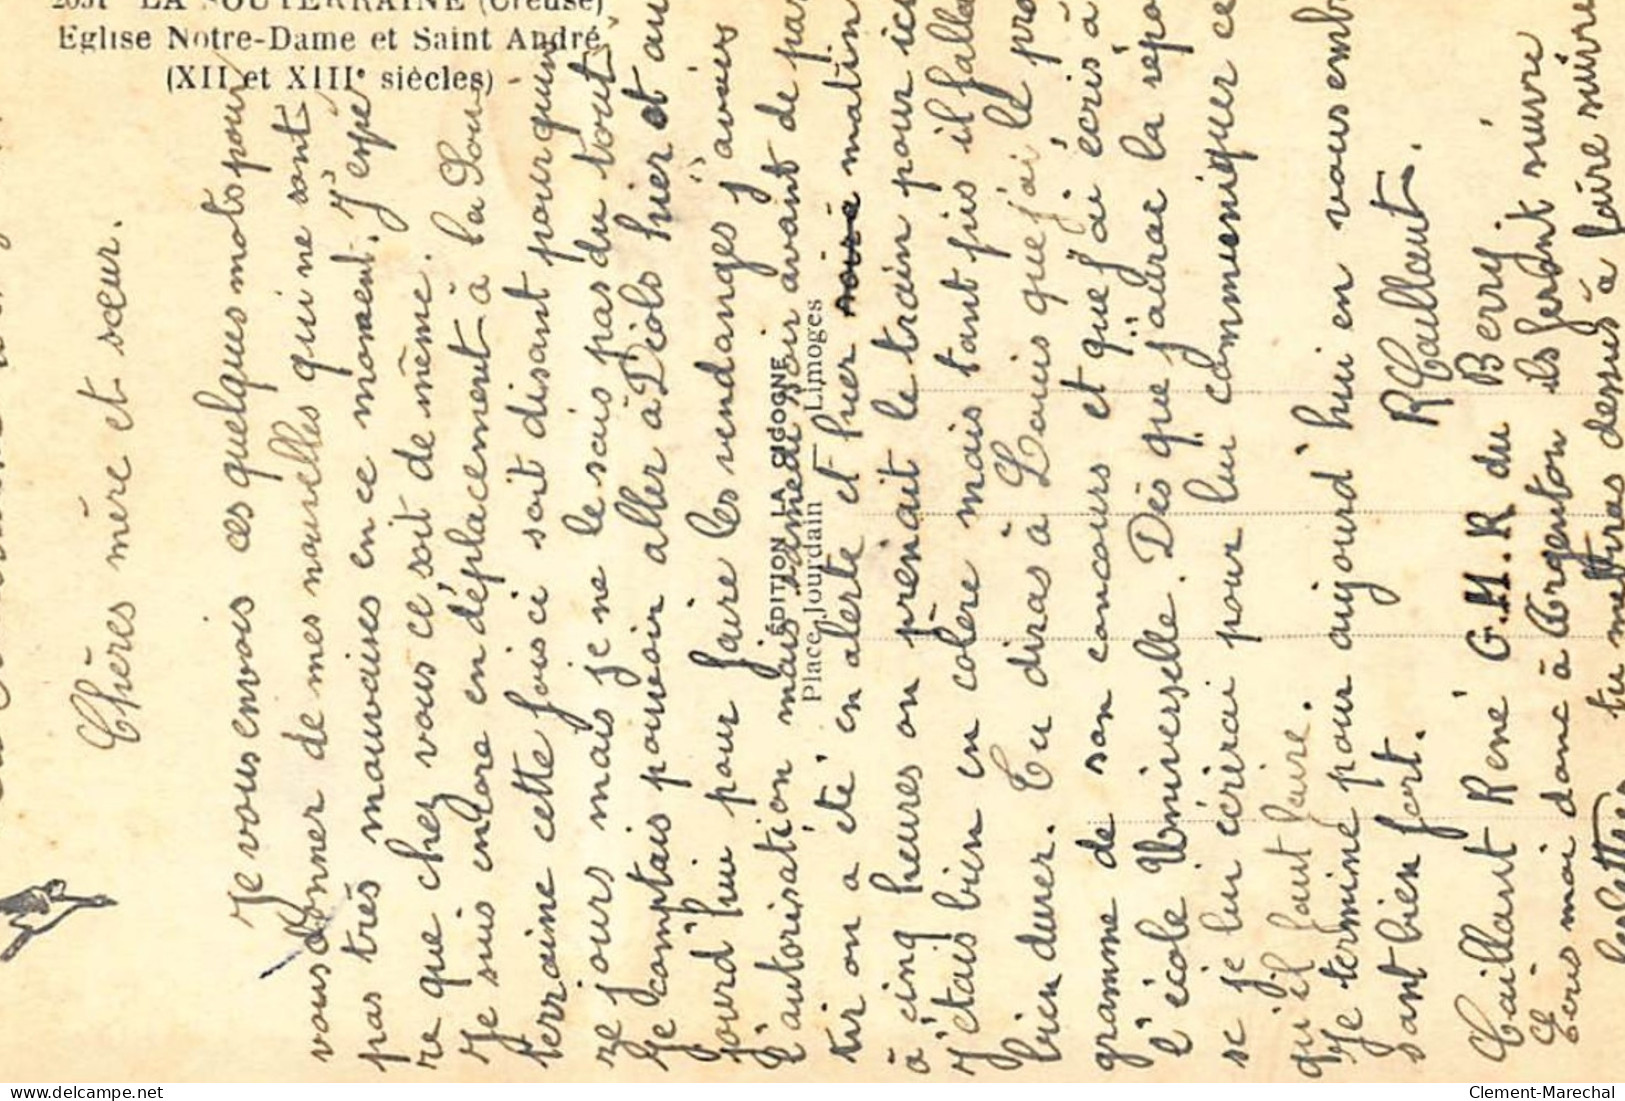 2031 LA SOUTERRAINE (Creuse)
Eglise Notre-Dame et Saint André
(XII et XIIIe siècles)
Chères mère et sœur.
Je vous envois ces quelques mots pour
vous donner de mes nouvelles qui ne sont
pas très mauvaises en ce moment. J'espè
re que chez vous ce soit de même.
Je suis encore en déplacement à la Sou
terraine cette fois ci soit disant pour quin
ze jours mais je ne le sais pas du tout
Je comptais pouvoir aller à Déols hier et au
jourd'hui pour faire les vendanges j'avais
l'autorisation mais samedi soir avant de par
tir on a été en alerte et hier matin
à cinq heures on prenait le train pour ici
J'étais bien en colère mais tant pis il fallait
bien durer. Tu diras à Louis que j'ai le pro
gramme de son concours et que j'ai écris à
l'école Universelle. Dès que j'aurae la répon
se je lui écrirai pour lui communiquer ce
qu'il faut faire.
Je termine pour aujourd'hui en vous embras
sant bien fort.
R Caillaut.
Caillaut René G.M.R du Berry.
Ecris moi donc à Argenton ils feront suivre
tu mettras dessus à faire suivre
EDITION LA CIGOGNE
Place Jourdain — Limoges
Clement-Marechal